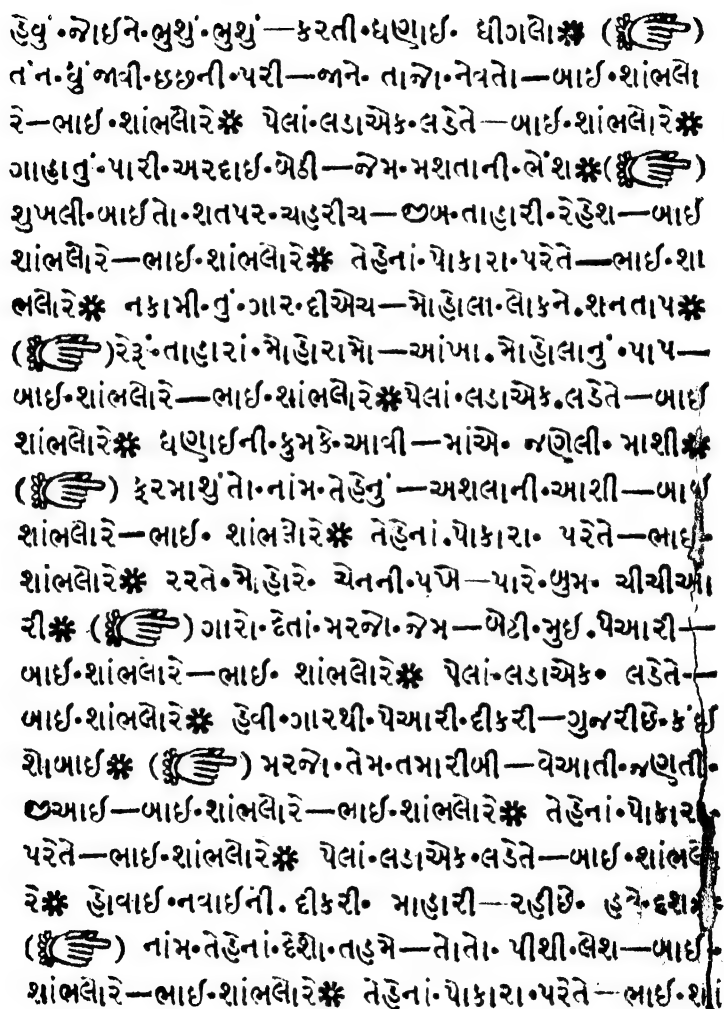 હેવું•જોઈને•ભુશું•ભુશું—કરતી•ધણાઈ• ધીગલો❋ (☞)
ત ન•ધું જાવી•છછની•પરી—જાને• તાજો•નેવતો—બાઈ•શાંભલો
રે—ભાઈ•શાંભલોરે❋ પેલાં•લડાએક•લડેતે—બાઈ•શાંભલોરે❋
ગાહાતું•પારી•અરદાઈ•બેઠી—જેમ•મશતાની•ભેંશ❋(☞)
શુખલી•બાઈતો•શતપર•ચહરીચ—જીબ•તાહારી•રેહેશ—બાઈ
શાંભલોરે—ભાઈ•શાંભલોરે❋ તેહેનાં•પોકારા•પરેતે—ભાઈ•શા
ભલોરે❋ નકામી•તું•ગાર•દીએચ—મોહોલા•લોકને•શનતાપ❋
(☞)રેરૂં•તાહારાં•મોહોરામો—આંખા•મોહોલાનું•પાપ—
બાઈ•શાંભલોરે—ભાઈ•શાંભલોરે❋પેલાં•લડાએક•લડેતે—બાઈ
શાંભલોરે❋ ધણાઈની•કુમકે•આવી—માંએ• જણેલી• માશી❋
(☞) ફૂરમાશુંતો•નાંમ•તેહેનું—અશલાની•આશી—બાઈ
શાંભલોરે—ભાઈ• શાંભલોરે❋ તેહેનાં•પોકારા• પરેતે—ભાઈ•
શાંભલોરે❋ રરતે•મોહોરે• ચેનની•પખે—પારે•બુમ• ચીચીઆ
રી❋ (☞)ગારો•દેતાં•મરજો•જેમ—બેટી•મુઈ•પેઆરી—
બાઈ•શાંભલોરે—ભાઈ• શાંભલોરે❋ પેલાં•લડાએક• લડેતે—
બાઈ•શાંભલોરે❋ હેવી•ગારથી•પેઆરી•દીકરી—ગુજરીછે•કંઈ
શોબાઈ❋ (☞) મરજો•તેમ•તમારીબી—વેઆતી•જણતી•
જીઆઈ—બાઈ•શાંભલોરે—ભાઈ•શાંભલોરે❋ તેહેનાં•પોકારા•
પરેતે—ભાઈ•શાંભલોરે❋ પેલાં•લડાએક•લડેતે—બાઈ•શાંભલો
રે❋ હોવાઈ•નવાઈની• દીકરી• માહારી—રહીછે• હવે•દશ❋
(☞) નાંમ•તેહેનાં•દેશો•તહમે—તોતો• પીશી•લેશ—બાઈ•
શાંભલોરે—ભાઈ•શાંભલોરે❋ તેહેનાં•પોકારા•પરેતે—ભાઈ•શાં